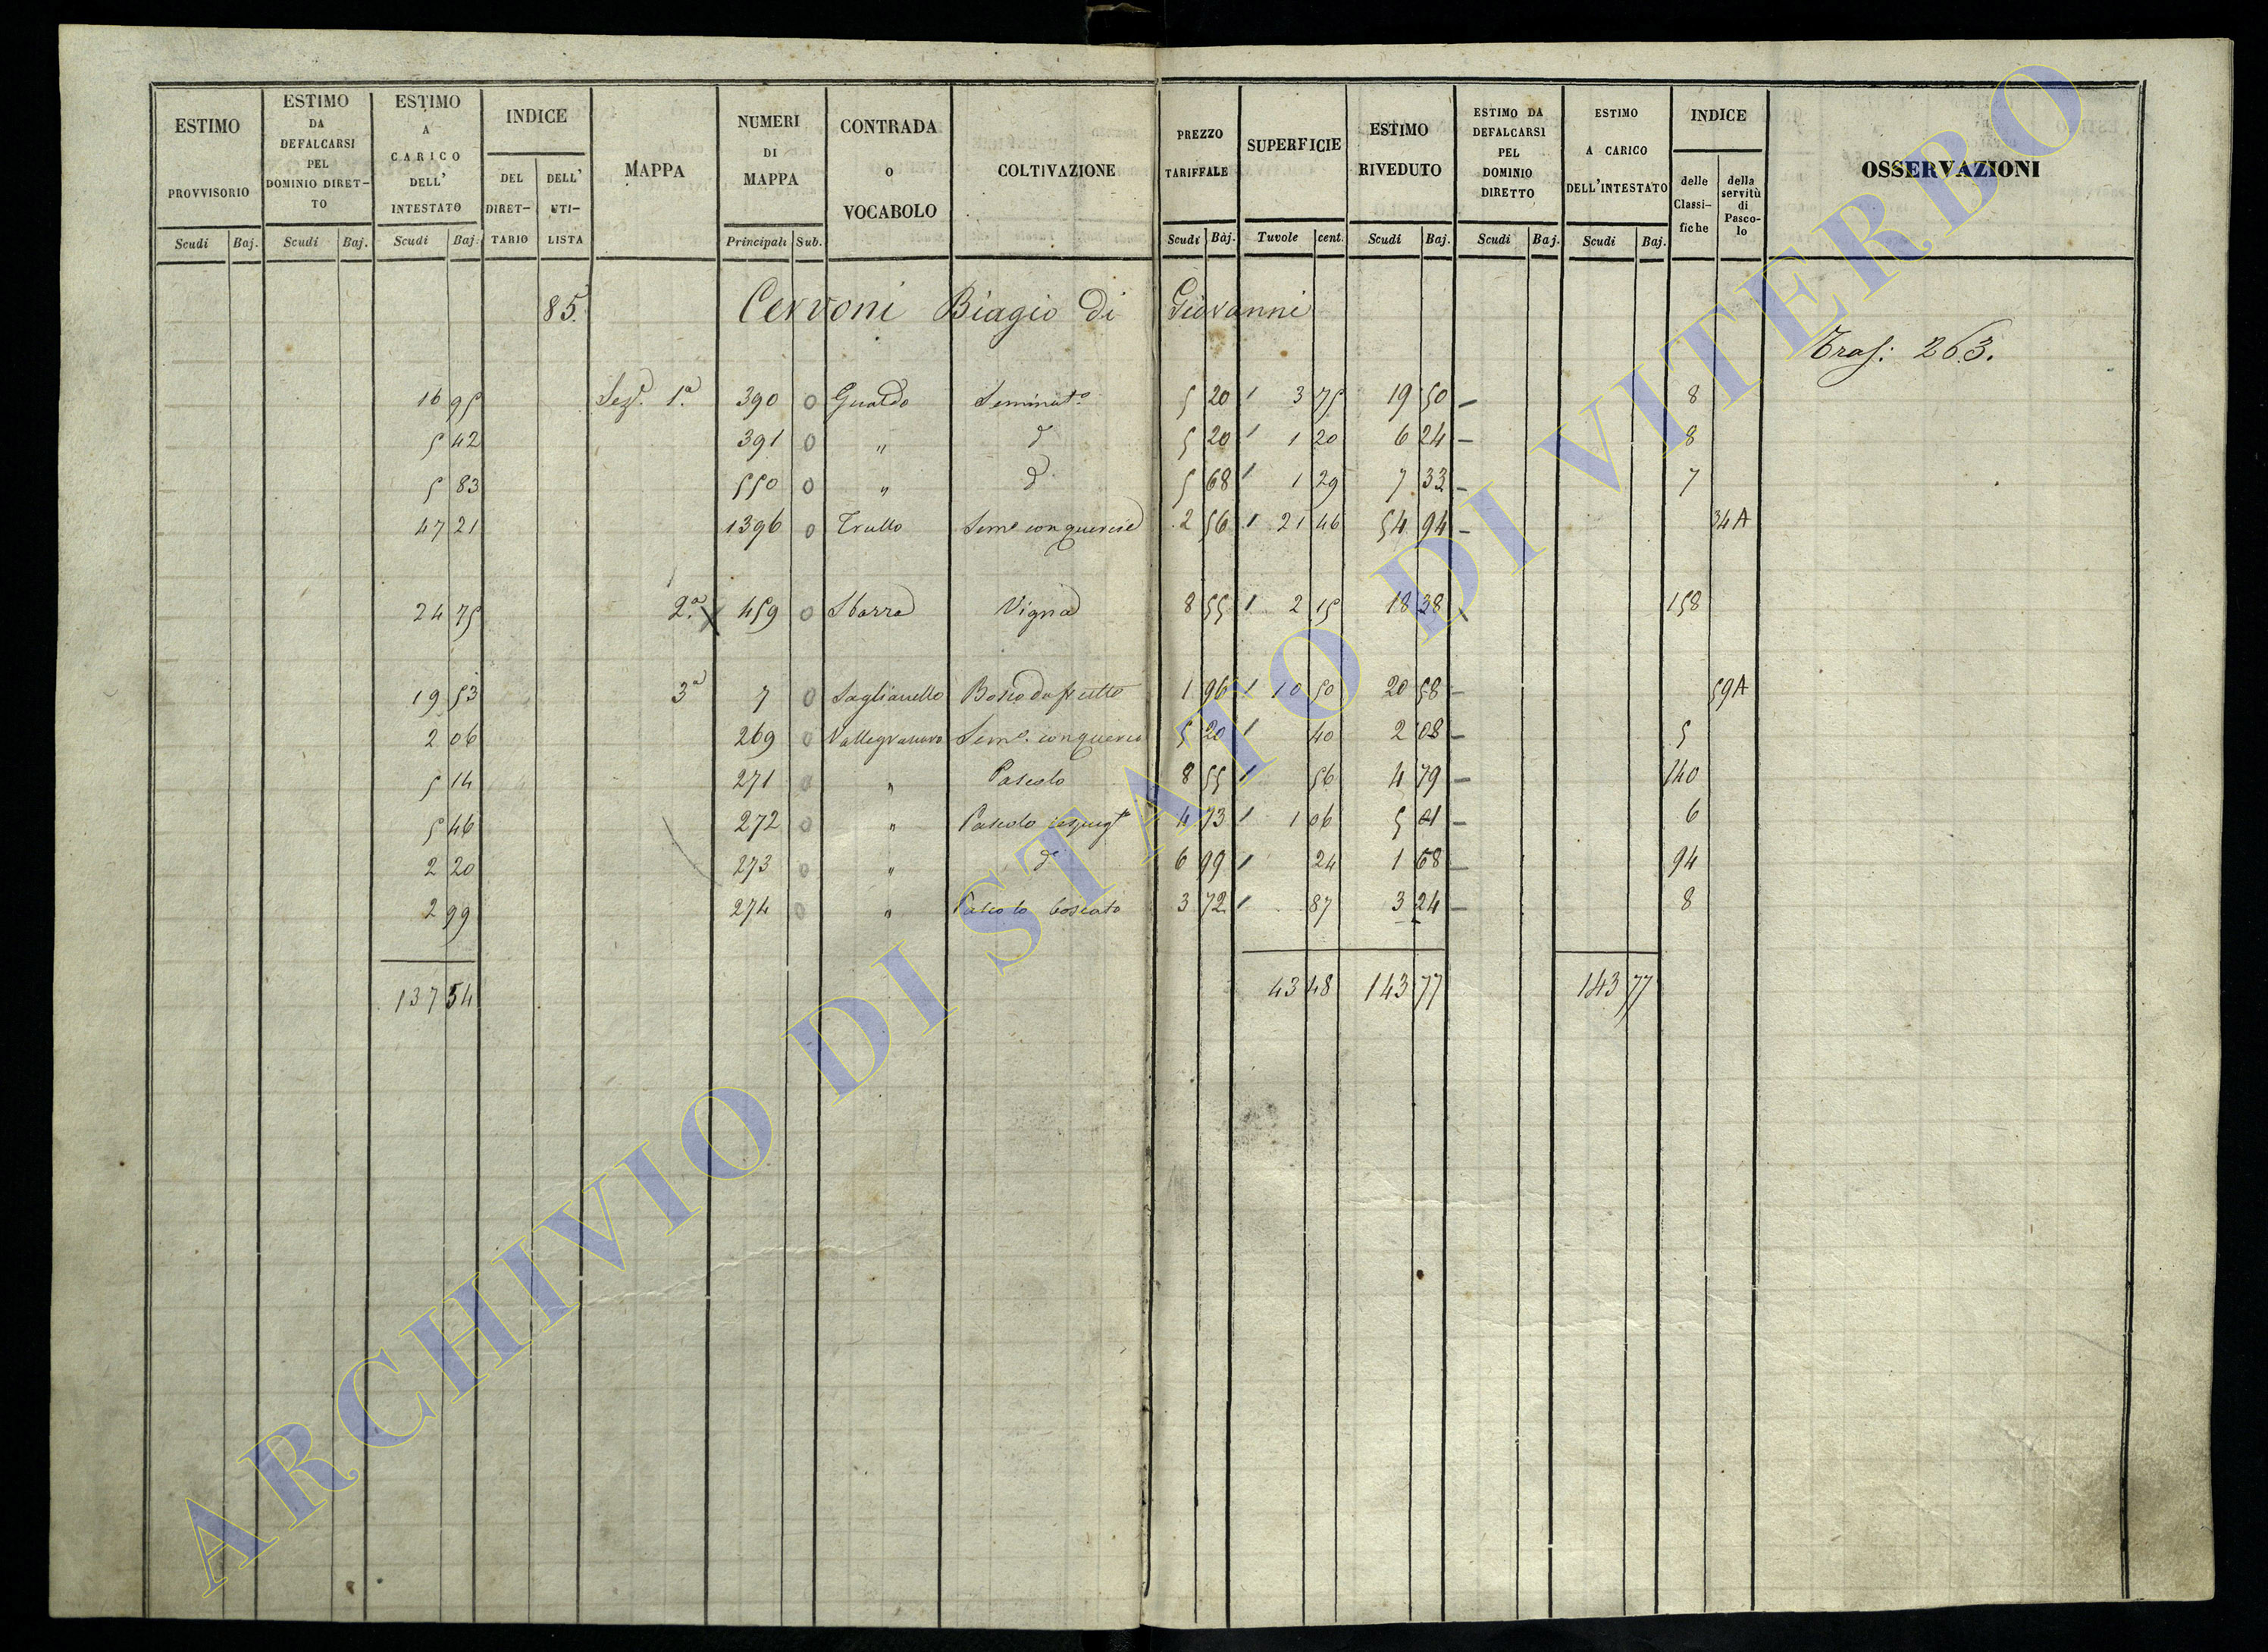 ESTIMO PROVVISORIO Scudi Baj.
ESTIMO DA DEFALCARSI PEL DOMINIO DIRET-TO Scudi Baj.
ESTIMO A CARICO DELL' INTESTATO Scudi Baj.
INDICE DEL DIRET-TARIO DELL' UTI-LISTA
MAPPA
NUMERI DI MAPPA Principali Sub.
CONTRADA O VOCABOLO
COLTIVAZIONE
PREZZO TARIFFALE Scudi Baj.
SUPERFICIE Tavole cent.
ESTIMO RIVEDUTO Scudi Baj.
ESTIMO DA DEFALCARSI PEL DOMINIO DIRETTO Scudi Baj.
ESTIMO A CARICO DELL'INTESTATO Scudi Baj.
INDICE delle Classi-fiche della servitù di Pasco-lo
OSSERVAZIONI
85. Cervoni Biagio di Giovanni
Tras: 263.
16 95 Sez.e 1.a 390 0 Gualdo Seminat.o 5 20 / 3 75 19 50 – 8
5 42 391 0 " d 5 20 / 1 20 6 24 – 8
5 83 550 0 " d 5 68 / 1 29 7 33 – 7
47 21 1396 0 Trullo Sem.e con querce 2 56 / 21 46 54 94 – 34A
24 75 2.a X 459 0 Sbarra Vigna 8 55 / 2 15 18 38 158
19 53 3a 7 0 Saglianello Bosco da frutto 1 96 / 10 50 20 58 – 59A
2 06 269 0 Sem.e con querce 5 20 / 40 2 08 – 5
5 14 271 0 " Pascolo 8 55 / 56 4 79 – 140
5 46 272 0 " Pascolo 4 73 / 1 06 5 01 – 6
2 20 273 0 " d 6 99 / 24 1 68 – 94
2 99 274 0 " Pascolo boscato 3 72 / 87 3 24 – 8
137 54 43 48 143 77 143 77
ARCHIVIO DI STATO DI VITERBO